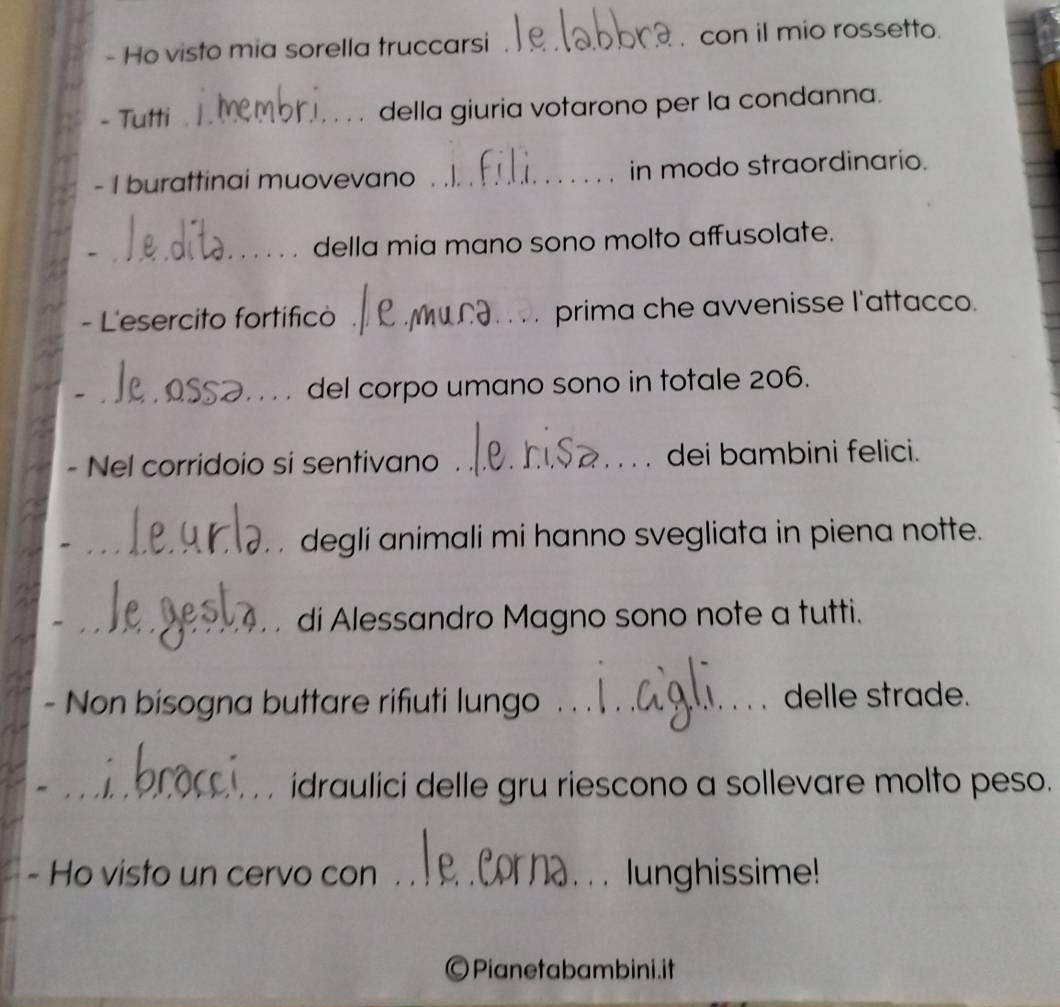 - Ho visto mia sorella truccarsi . le labbra . . con il mio rossetto.
- Tutti . i membri . . . . della giuria votarono per la condanna.
- I burattinai muovevano . . i fili . . . . . . . in modo straordinario.
- . le dita . . . . . . della mia mano sono molto affusolate.
- L'esercito fortificò . le mura . . . . prima che avvenisse l'attacco.
- . le ossa . . . . del corpo umano sono in totale 206.
- Nel corridoio si sentivano . . le risa . . . . dei bambini felici.
- . . . le urla . . degli animali mi hanno svegliata in piena notte.
- . . le gesta . . di Alessandro Magno sono note a tutti.
- Non bisogna buttare rifiuti lungo . . . i cigli . . . . delle strade.
- . . . i bracci . . . idraulici delle gru riescono a sollevare molto peso.
- Ho visto un cervo con . . le corna . . . lunghissime!
©Pianetabambini.it